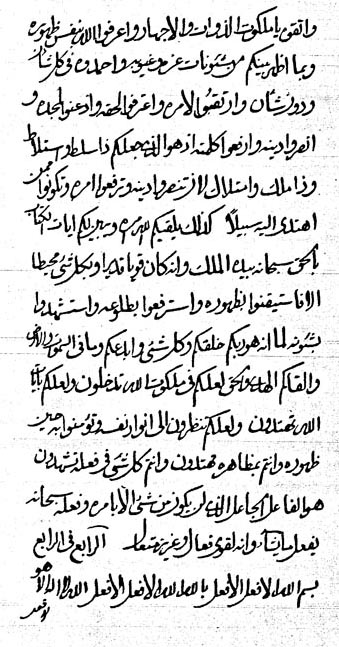 واتقون يا ملكوت الذوات والاجساد واعرفوا الله بنفس ظهوره
وبما اظهر بينكم من شئونات عز وغيوبه واحمدوه في كل شان
ودون شان وارتقبوا لامره واعترفوا لحقه واذعنوا لمجده و
انصروا دينه وارفعوا كلمته اذ هو الذي جعلكم ذا سلط واستلاط
وذا ملك وامتلاك لان تنصروا دينه وترفعوا امره وتكونوا ممن
اهتدى اليه سبيلا كذلك يلقيكم الله امره وينزل اليكم ايات الكتاب
بالحق سبحانه بيده الملك وانه كان قويا قديرا وبكل شئ محيطا
الا فاستيقنوا بظهوره واسترفعوا بطلوعه واستشهدوا
بشئونه لما انه هو ربكم خلقكم وكل شئ وابدعكم وما في السموات والارض
والقاكم الهدى والحق لعلكم في ملكوت الله تدخلون ولعلكم بايات
الله تهتدون ولعلكم تنظرون الى انوار نفسه وتؤمنوا به حين
ظهوره وانتم بمظاهره تهتدون وانتم كل شئ في فعله تشهدون
هو الفاعل الجاعل الذي لن يكون من شئ الا بامره وفعله سبحانه
يفعل ما يشاء وانه لقوي فعال وعزيز متعال الرابع في الرابع
بسم الله الافعل الافعل بالله الله الافعل الافعل الله لا اله الا هو